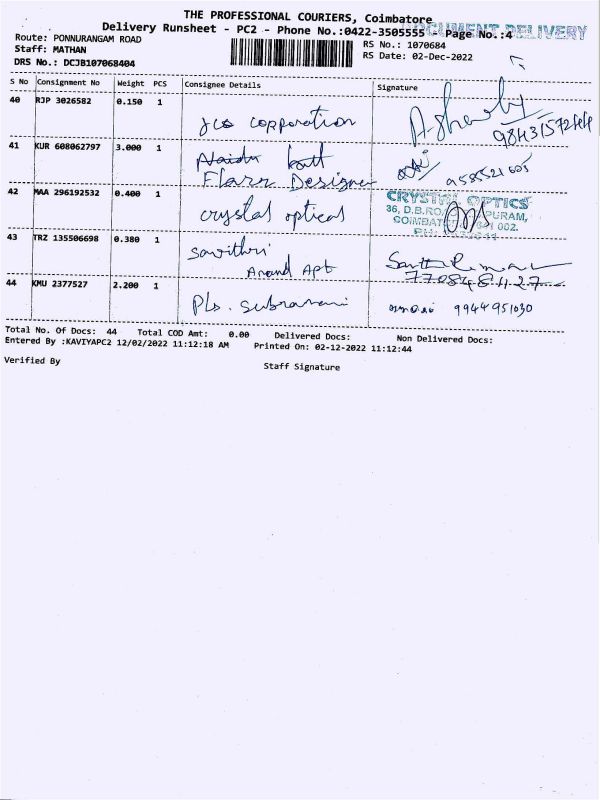 THE PROFESSIONAL COURIERS, Coimbatore
DOCUMENT DELIVERY
Delivery Runsheet - PC2 - Phone No.:0422-3505555 - Page No.:4
Route: PONNURANGAM ROAD
RS No.: 1070684
Staff: MATHAN
RS Date: 02-Dec-2022
DRS No.: DCJB107068404
S No Consignment No Weight PCS Consignee Details Signature
40 RJP 3026582 0.150 1
corporation
41 KUR 608062797 3.000 1
Naidu
Flarr Designer
42 MAA 296192532 0.400 1
crystal optical
CRYSTAL OPTICS
36, D.B.RO PURAM,
COIMBAT 641 002.
43 TRZ 135506698 0.380 1
savithri
Anand Apt
44 KMU 2377527 2.200 1
9944951030
Total No. Of Docs: 44 Total COD Amt: 0.00 Delivered Docs: Non Delivered Docs:
Entered By :KAVIYAPC2 12/02/2022 11:12:18 AM Printed On: 02-12-2022 11:12:44
Verified By
Staff Signature